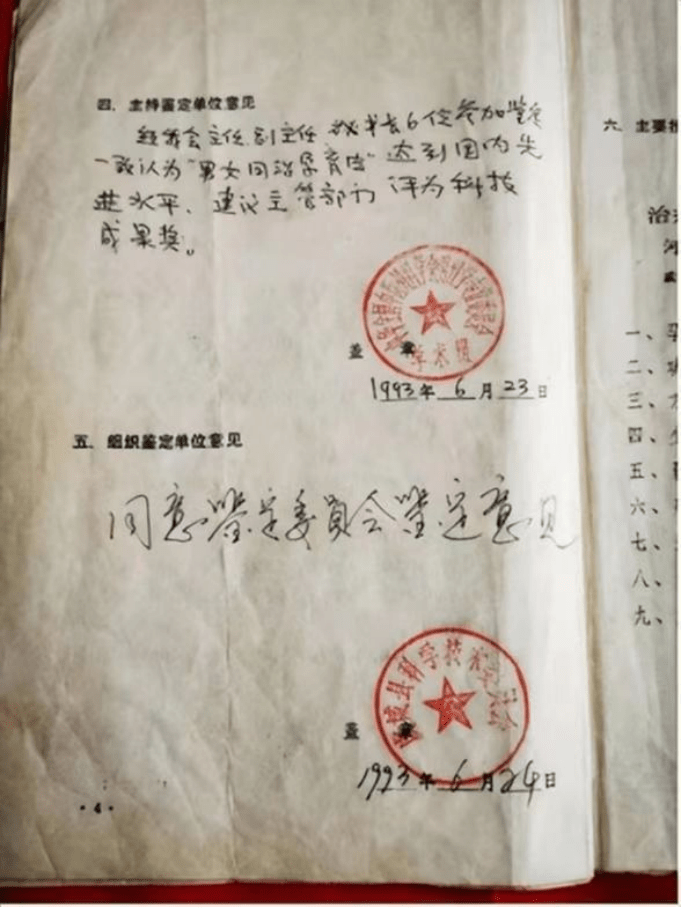 四、主持鉴定单位意见
经我会主任、副主任、秘书长6位参加鉴定
一致认为“男女同治孕育法”达到国内先
进水平、建议主管部门评为科技
成果奖。
学术组
盖 章
1993年 6 月 23 日
五、组织鉴定单位意见
同意鉴定委员会鉴定意见
县科学技术委员会
盖 章
1993年 6 月 24 日
·4·
六、主要
治
河
一、
二、
三、
四、
五、
六、
七、
八、
九、